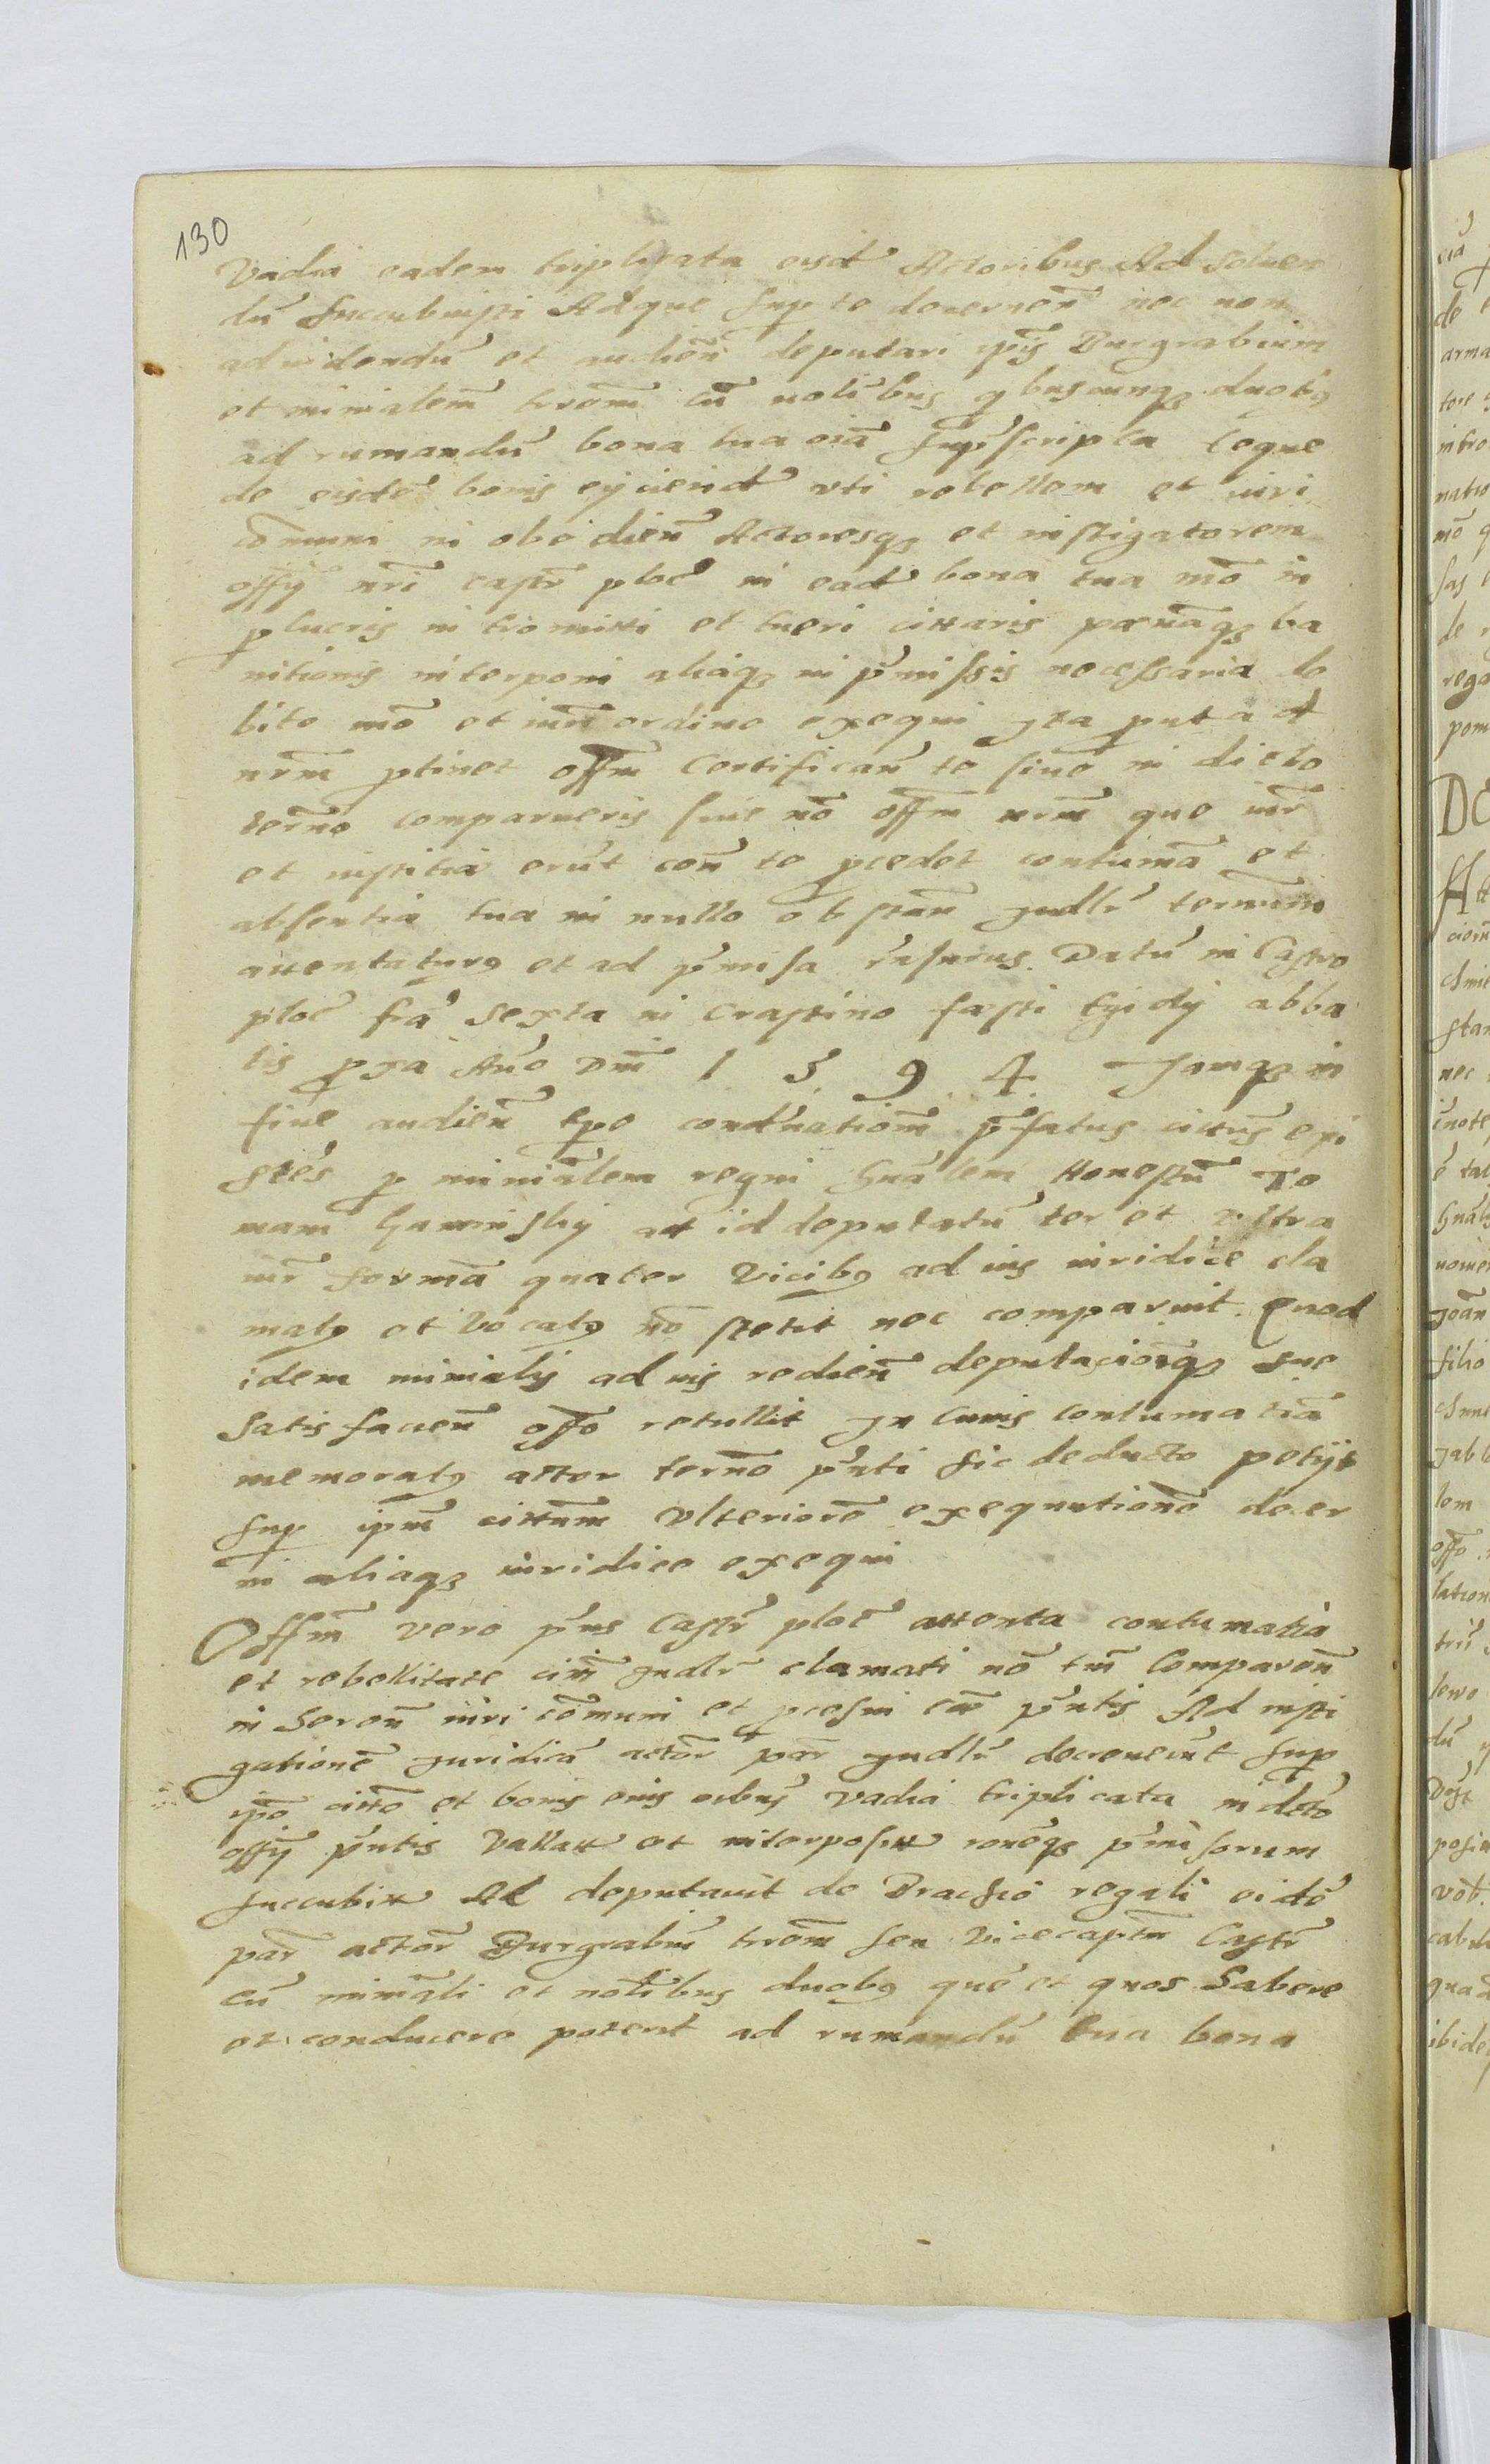 130
Vadia eadem triplicata eisd Actoribus Ad Soluen
dũ Succubuisti Adque sup te decernen̄ nec non
ad uidendũ et audien̄ deputari ip̄is Burgrabium
et minialem̄ terrem̄ cũ nolĩbus qbuscunqȝ duobꝰ
ad rumandũ bona tua oĩa supscripta teque
de eisdẽ bonis eijciend uti rebellem et iuri
cõmuni in obedien̄ Actoresqȝ et instigatorem
offij nrĩ castr̃ ploc̃ in ead bona tua mõ in
p lucris intromitti et tueri cittaris pœnãqȝ ba
nitionis interponi aliaqȝ in p̃missis necessaria de
bito mõ et iur̃ ordine exequi jta put ad
nrm̃ ptinet offm̃ Certifican̄ te siue in dicto
term̃no comparueris siue nõ offm̃ nrm̃ quo iur̃
et iustitia erũt con̄ te pcedet contumã et
absentia tua in nullo obstan̄ judlr̃ termĩnũ
attentaturꝰ et ad p̃misa r̃nsurus Datũ in Castro
ploc̃ fr̃a sexta in Crastino fæsti Egidij abba
tis pxa Ano Dm̃ 1 5 9 4 Jamqȝ in
fine audien̄ tpe cond̃nationm̃ p̃fatus cittus exi
stẽs p minialem regni Gnãlem Honestũ To
mam Gawinskij ad id deputatũ ter et ultra
iur̃ formã quater Vicibꝰ ad ius iuridice cla
matꝰ et Vocatꝰ nõ stetit nec comparuit Quod
idem minialis ad ius redien̄ deputacionĩqȝ sue
satisfacien̄ offo retullit Jn Cuius contumatiã
memoratꝰ actor term̃no p̃nti sic deducto petijt
sup ipm̃ cittum̃ Ulteriorẽ exequutionẽ decer
ni aliaqȝ iuridice exequi
Offm̃ vero p̃ns Castr̃ ploc̃ attenta contumatia
et rebellitate citti judlr̃ clamati nõ tm̃ Comparen̄
in Seren̄ iuri cõmuni et pcesui cãe p̃ntis Ad insti
gationẽ juridicã actor̃ par̃ judlr̃ decreuerũt sup
ipo citto et bonis eius oĩbus vadia triplicata in dc̃to
offij p̃ntis Vallatt et interposutt ronẽqȝ p̃missorum
succubitt Ad deputauit de Brachio regali eidẽ
par̃ actor̃ Burgrabiũ terrem̃ seu Vicecaptm̃ Castr̃
cũ miniãli et nolĩbus duobꝰ quẽ et quos habere
et conducere poterit ad rumandũ tua bona